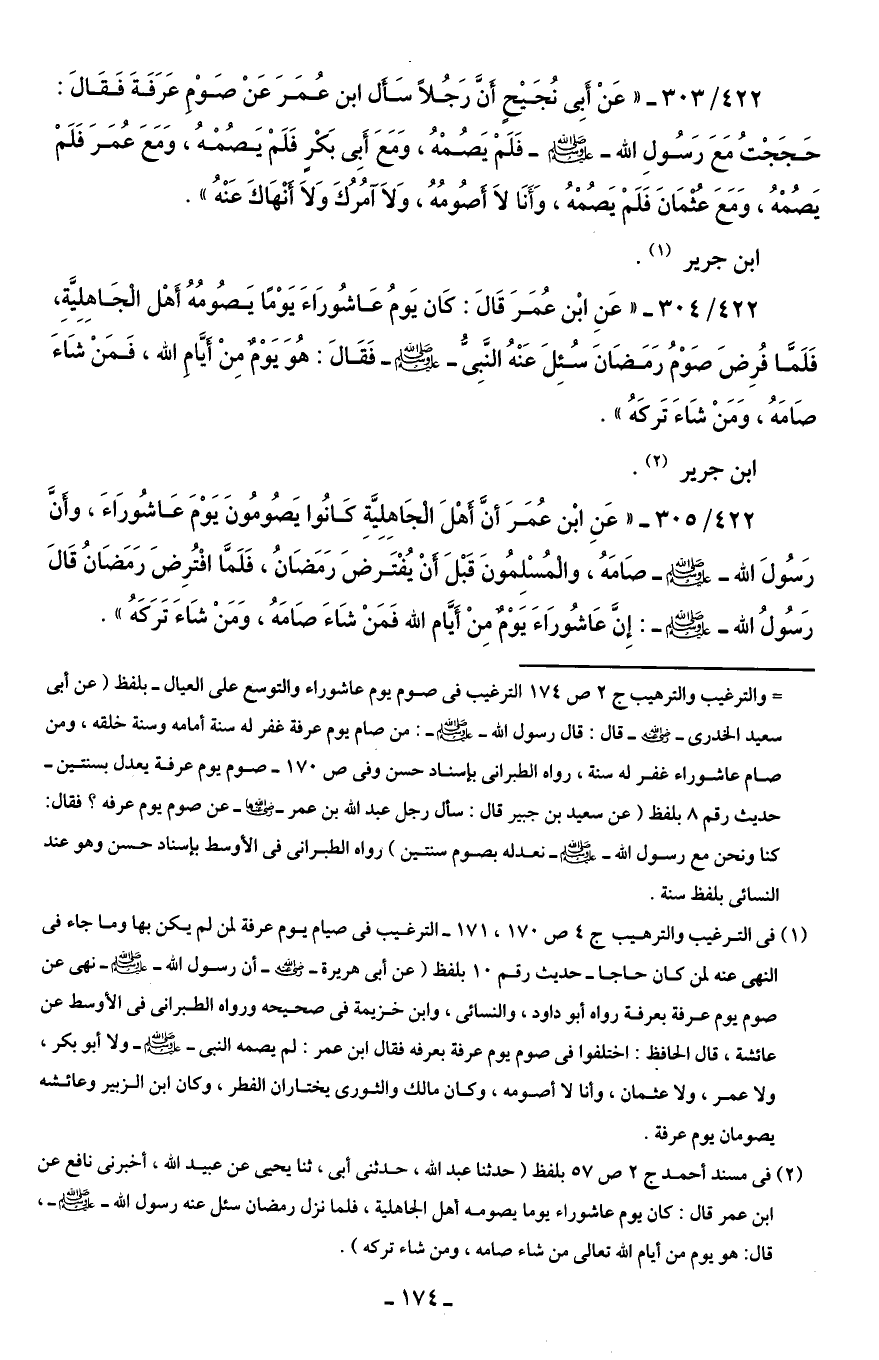 ٤٢٢/ ٣٠٣ ـ « عَنْ أَبِى نُجَيْحٍ أَنَّ رَجُلاً سَأَل ابن عُمَرَ عَنْ صَوْمِ عَرَفَةَ فَقَالَ :
حَجَجْتُ مَعَ رَسُولِ الله ـ ﷺ ـ فَلَمْ يَصُمْهُ ، وَمَعَ أَبِى بَكْرٍ فَلَمْ يَصُمْهُ ، وَمَعَ عُمَرَ فَلَمْ
يَصُمْهُ ، وَمَعَ عُثْمَانَ فَلَمْ يَصُمْهُ ، وَأَنَا لاَ أَصُومُهُ ، وَلاَ آمُرُكَ وَلاَ أَنْهَاكَ عَنْهُ » .
ابن جرير (١) .
٤٢٢/ ٣٠٤ ـ « عَنِ ابْنِ عُمَرَ قَالَ : كَان يَومُ عَاشُورَاءَ يَوْمًا يَصُومُهُ أَهْل الْجَاهِليَّةِ،
فَلَمَّا فُرِضَ صَوْمُ رَمَضَانَ سُئِلَ عَنْهُ النَّبِىُّ ـ ﷺ ـ فَقَالَ : هُوَ يَوْمٌ مِنْ أَيَّامِ الله ، فَمَنْ شَاءَ
صَامَهُ ، وَمَنْ شَاءَ تَرَكَهُ » .
ابن جرير (٢) .
٤٢٢/ ٣٠٥ ـ « عَنِ ابْنِ عُمَرَ أنَّ أَهْلَ الْجَاهِليَّةِ كَانُوا يَصُومُونَ يَوْمَ عَاشُورَاءَ ، وأَنَّ
رَسُولَ الله ـ ﷺ ـ صَامَهُ ، والْمُسْلِمُونَ قَبْلَ أَنْ يُفْتَرضَ رَمَضَانُ ، فَلَمَّا افْتُرِضَ رَمَضَانُ قَالَ
رَسُولُ الله ـ ﷺ ـ : إِنَّ عَاشُورَاءَ يَوْمٌ مِنْ أَيَّام الله فَمَنْ شَاءَ صَامَهُ ، وَمَنْ شَاءَ تَرَكَهُ » .
= والترغيب والترهيب ج ٢ ص ١٧٤ الترغيب فى صوم يوم عاشوراء والتوسع على العيال ـ بلفظ ( عن أبى
سعيد الخدرى ـ رضي الله عنه ـ قال : قال رسول الله ـ ﷺ ـ : من صام يوم عرفة غفر له سنة أمامه وسنة خلفه ، ومن
صام عاشوراء غفر له سنة ، رواه الطبرانى بإسناد حسن وفى ص ١٧٠ ـ صوم يوم عرفة يعدل بسنتين ـ
حديث رقم ٨ بلفظ ( عن سعيد بن جبير قال : سأل رجل عبد الله بن عمر ـ رضي الله عنهما ـ عن صوم يوم عرفه ؟ فقال:
كنا ونحن مع رسول الله ـ ﷺ ـ نعدله بصوم سنتين ) رواه الطبرانى فى الأوسط بإسناد حسن وهو عند
النسائى بلفظ سنة .
(١) فى الترغيب والترهيب ج ٤ ص ١٧٠ ، ١٧١ ـ الترغيب فى صيام يوم عرفة لمن لم يكن بها وما جاء فى
النهى عنه لمن كان حاجا ـ حديث رقم ١٠ بلفظ ( عن أبى هريرة ـ رضي الله عنه ـ أن رسول الله ـ ﷺ ـ نهى عن
صوم يوم عرفة بعرفة رواه أبو داود ، والنسائى ، وابن خزيمة فى صحيحه ورواه الطبرانى فى الأوسط عن
عائشة ، قال الحافظ : اختلفوا فى صوم يوم عرفة بعرفه فقال ابن عمر : لم يصمه النبى ـ ﷺ ـ ولا أبو بكر ،
ولا عمر ، ولا عثمان ، وأنا لا أصومه ، وكان مالك والثورى يختاران الفطر ، وكان ابن الزبير وعائشه
يصومان يوم عرفة .
(٢) فى مسند أحمد ج ٢ ص ٥٧ بلفظ ( حدثنا عبد الله ، حدثنى أبى ، ثنا يحيى عن عبيد الله ، أخبرنى نافع عن
ابن عمر قال : كان يوم عاشوراء يوما يصومه أهل الجاهلية ، فلما نزل رمضان سئل عنه رسول الله ـ ﷺ ـ ،
قال: هو يوم من أيام الله تعالى من شاء صامه ، ومن شاء تركه ) .
ـ ١٧٤ ـ